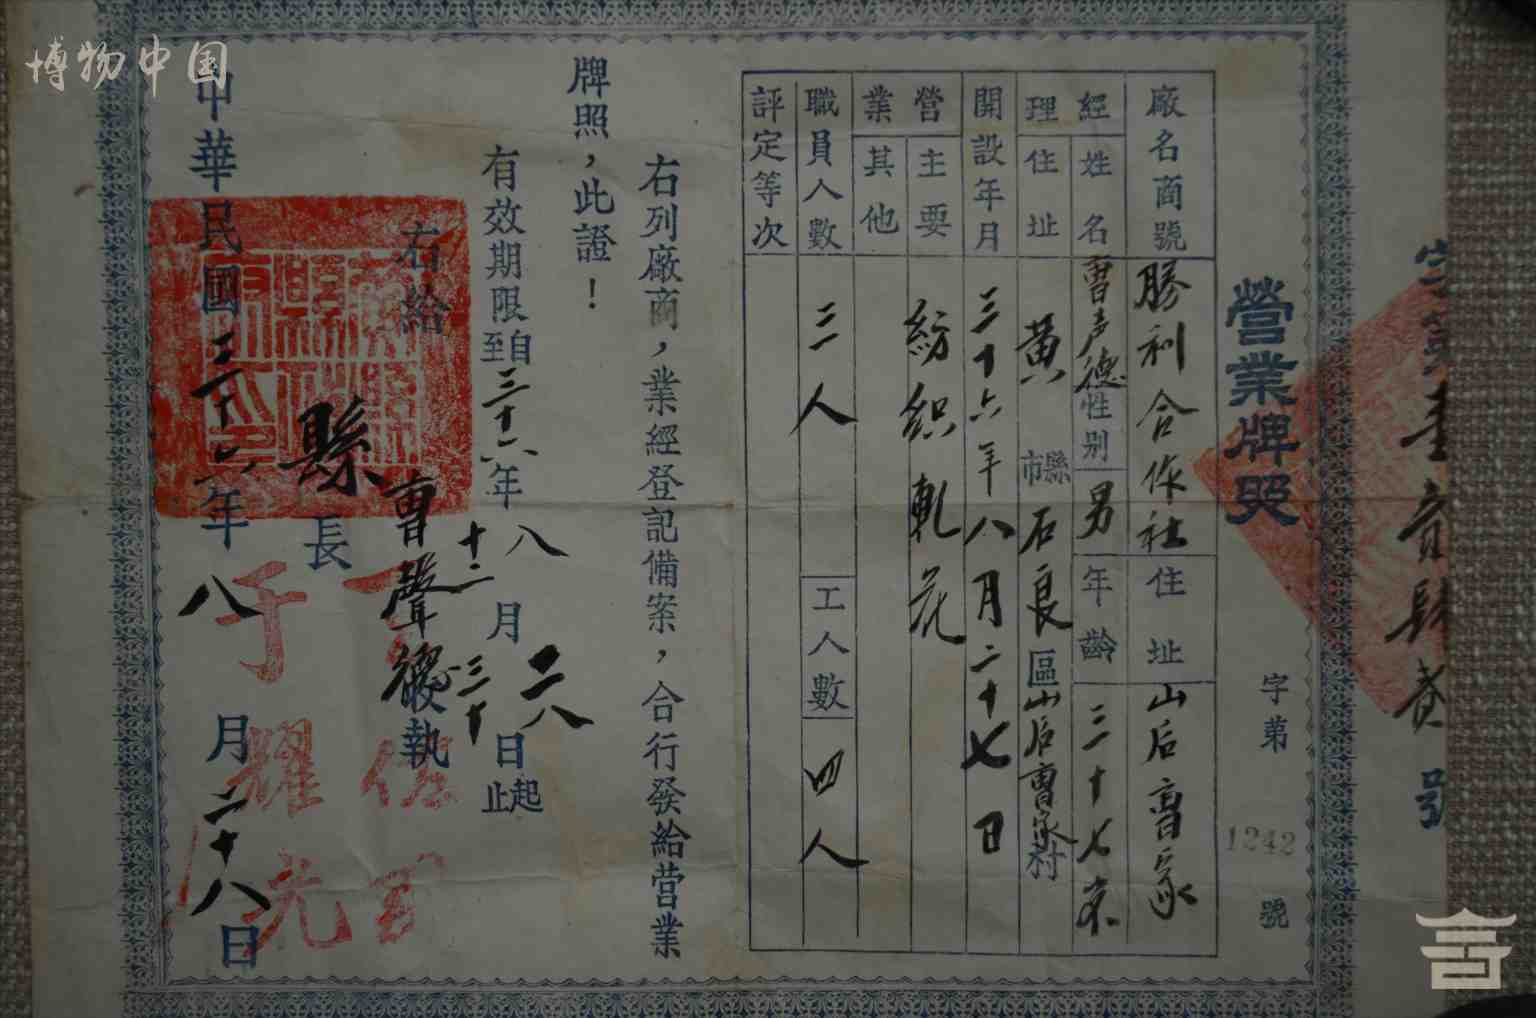 博物中国
營業牌照
字第 1242 號
廠名商號 勝利合作社 住址 山后曹家
經理 姓名 曹声德 性别 男 年齡 三十七
經理 住址 黄 縣市 石良 區 山后曹家 村
開設年月 三十六年八月二十七日
營業 主要 紡織軋花
營業 其他
職員人數 三人 工人數 四人
評定等次
右列廠商，業經登記備案，合行發給營業
牌照，此證！
有效期限自至三十六年八十二月二八三十日起止
右給 曹聲德 執
縣長
中華民國三十六年八月二十八日